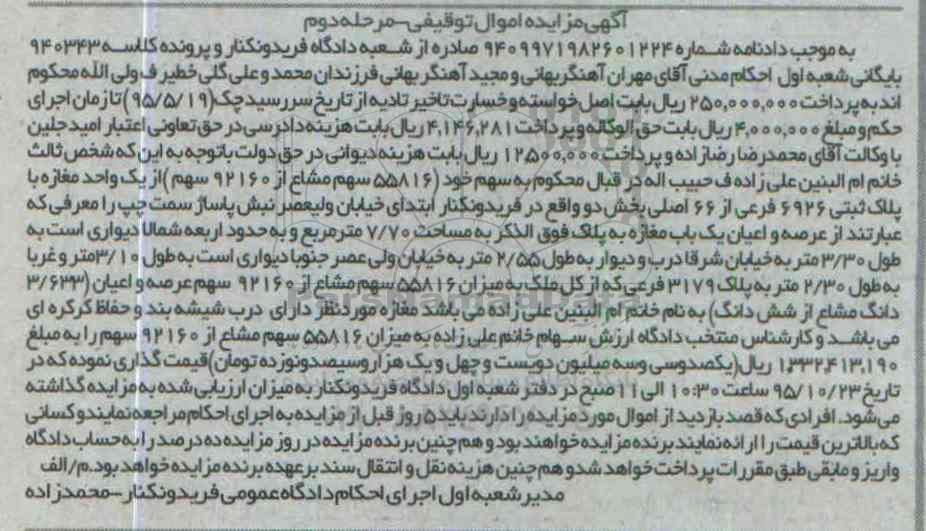 آگهی مزایده اموال توقیفی-مرحله دوم
به موجب دادنامه شماره ۹۴۰۹۹۷۱۹۸۲۶۰۱۲۲۴ صادره از شعبه دادگاه فریدونکنار و پرونده کلاسه ۹۴۰۳۴۳
بایگانی شعبه اول احکام مدنی آقای مهران آهنگربهانی و مجید آهنگر بهانی فرزندان محمد و علی گلی خطیر ف ولی الله محکوم
اند به پرداخت ۲۵۰,۰۰۰,۰۰۰ ریال بابت اصل خواسته و خسارت تاخیر تادیه از تاریخ سررسید چک(۹۵/۵/۱۹) تا زمان اجرای
حکم و مبلغ ۴,۰۰۰,۰۰۰ ریال بابت حق الوکاله و پرداخت ۴,۱۴۶,۲۸۱ ریال بابت هزینه دادرسی در حق تعاونی اعتبار امید جلین
با وکالت آقای محمدرضا رضازاده و پرداخت ۱۲,۵۰۰,۰۰۰ ریال بابت هزینه دیوانی در حق دولت باتوجه به این که شخص ثالث
خانم ام البنین علی زاده ف حبیب اله در قبال محکوم به سهم خود (۵۵۸۱۶ سهم مشاع از ۹۲۱۶۰ سهم) از یک واحد مغازه با
پلاک ثبتی ۶۹۲۶ فرعی از ۶۶ اصلی بخش دو واقع در فریدونکنار ابتدای خیابان ولیعصر نبش پاساژ سمت چپ را معرفی که
عبارتند از عرصه و اعیان یک باب مغازه به پلاک فوق الذکر به مساحت ۷/۷۰ مترمربع و به حدود اربعه شمالا دیواری است به
طول ۳/۳۰ متر به خیابان شرقا درب و دیوار به طول ۲/۵۵ متر به خیابان ولی عصر جنوبا دیواری است به طول ۳/۱۰ متر و غربا
به طول ۲/۳۰ متر به پلاک ۳۱۷۹ فرعی که از کل ملک به میزان ۵۵۸۱۶ سهم مشاع از ۹۲۱۶۰ سهم عرصه و اعیان (۳/۶۳۳
دانگ مشاع از شش دانگ) به نام خانم ام البنین علی زاده می باشد مغازه موردنظر دارای درب شیشه بند و حفاظ کرکره ای
می باشد و کارشناس منتخب دادگاه ارزش سهام خانم علی زاده به میزان ۵۵۸۱۶ سهم مشاع از ۹۲۱۶۰ سهم را به مبلغ
۱,۳۳۲,۴۱۳,۱۹۰ ریال(یکصدوسی وسه میلیون دویست و چهل و یک هزار وسیصدونوزده تومان)قیمت گذاری نموده که در
تاریخ ۹۵/۱۰/۲۳ ساعت ۱۰:۳۰ الی ۱۱ صبح در دفتر شعبه اول دادگاه فریدونکنار به میزان ارزیابی شده به مزایده گذاشته
می شود. افرادی که قصد بازدید از اموال مورد مزایده را دارند باید ۵ روز قبل از مزایده به اجرای احکام مراجعه نمایند و کسانی
که بالاترین قیمت را ارائه نمایند برنده مزایده خواهند بود و هم چنین برنده مزایده در روز مزایده ده درصد را به حساب دادگاه
واریز و مابقی طبق مقررات پرداخت خواهد شد و هم چنین هزینه نقل و انتقال سند برعهده برنده مزایده خواهد بود.م/الف
مدیر شعبه اول اجرای احکام دادگاه عمومی فریدونکنار-محمدزاده
ParsNamadData